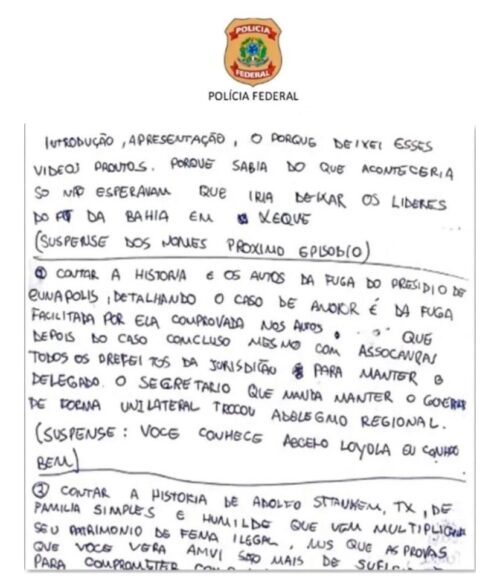 POLICIA
FEDERAL
POLÍCIA FEDERAL
INTRODUÇÃO, APRESENTAÇÃO, O PORQUE DEIXEI ESSES
VIDEOS PRONTOS. PORQUE SABIA DO QUE ACONTECERIA
SO NÃO ESPERAVAM QUE IRIA DEIXAR OS LIDERES
DO PT DA BAHIA EM XEQUE
(SUSPENSE DOS NOMES PROXIMO EPISODIO)
① CONTAR A HISTORIA E OS AUTOS DA FUGA DO PRESIDIO DE
EUNAPOLIS, DETALHANDO O CASO DE É DA FUGA
FACILITADA POR ELA COMPROVADA NOS AUTOS. QUE
DEPOIS DO CASO CONCLUSO MESMO COM
TODOS OS PREFEITOS DA JURISDIÇÃO PARA MANTER O
DELEGADO. O SEGRETARIO QUE MANDA MANTER O
DE FORMA UNILATERAL TROCOU REGIONAL.
(SUSPENSE: VOCE CONHECE LOYOLA EU CONHEÇO
BEM)
② CONTAR A HISTORIA DE ADOLFO TX, DE
FAMILIA SIMPLES E HUMILDE QUE VEM
SEU PATRIMONIO DE ILEGAL, MS QUE AS PROVAS
QUE VOCE VERA SÃO MAIS DE
PARA COMPROMETER